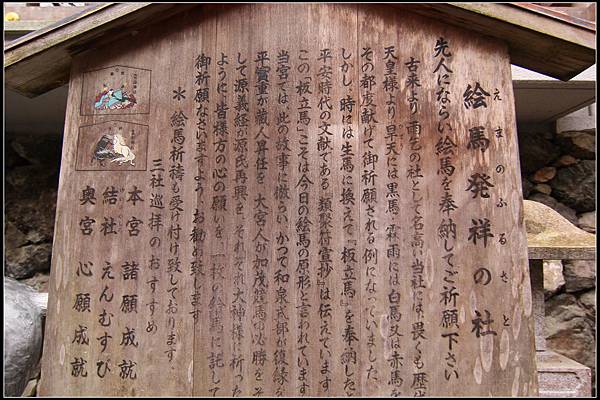 絵馬発祥の社
えまのふるさと
先人にならい絵馬を奉納してご祈願下さい
古来より雨乞の社として名高い当社には、畏くも歴代
天皇様より旱天には黒馬・霖雨には白馬又は赤馬を
その都度献げて御祈願される例になっていました。
しかし、時には生馬に換えて『板立馬』を奉納したと
平安時代の文献である『類聚符宣抄』は伝えています
この『板立馬』こそは今日の絵馬の原形と言われています
当宮では、此の故事に倣い、かつて和泉式部が復縁を
平實重が蔵人昇任を、大宮人が加茂競馬の必勝をそ
して源義経が源氏再興を、それぞれ大神様に祈った
ように、皆様方の心の願いを、一枚の絵馬に託して
御祈願なさいますよう、お勧め致します
＊絵馬祈祷も受け付け致しております。
三社巡拝のおすすめ
本宮 諸願成就
結社 えんむすび
奥宮 心願成就